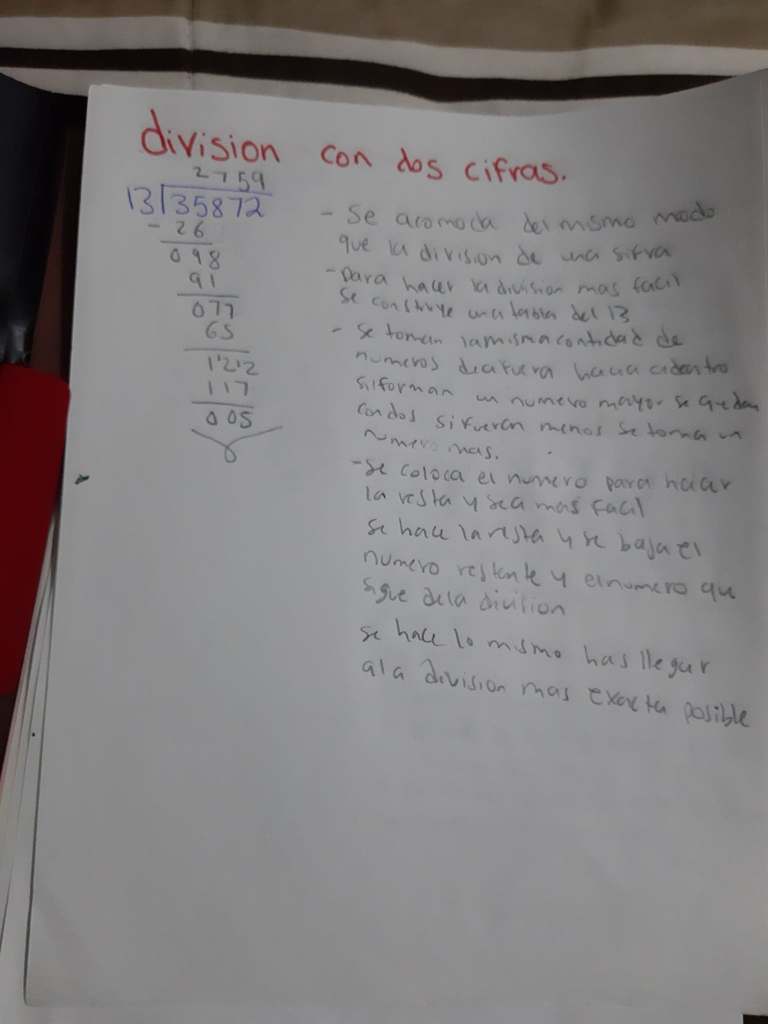 division con dos cifras.
2759
13 35872
- 26
098
91
077
65
122
117
005
- Se acomoda del mismo modo
que la division de una sifra
- para hacer la division mas facil
se construye una tabla del 13
- se toman la misma contidad de
numeros de afuera hacia adentro
si forman un numero mayor se quedan
con dos si fueran menos se toma un
numero mas.
- se coloca el numero para hacer
la resta y sea mas facil
se hace la resta y se baja el
numero restante y el numero que
sigue de la division
se hace lo mismo has llegar
a la division mas exacta posible